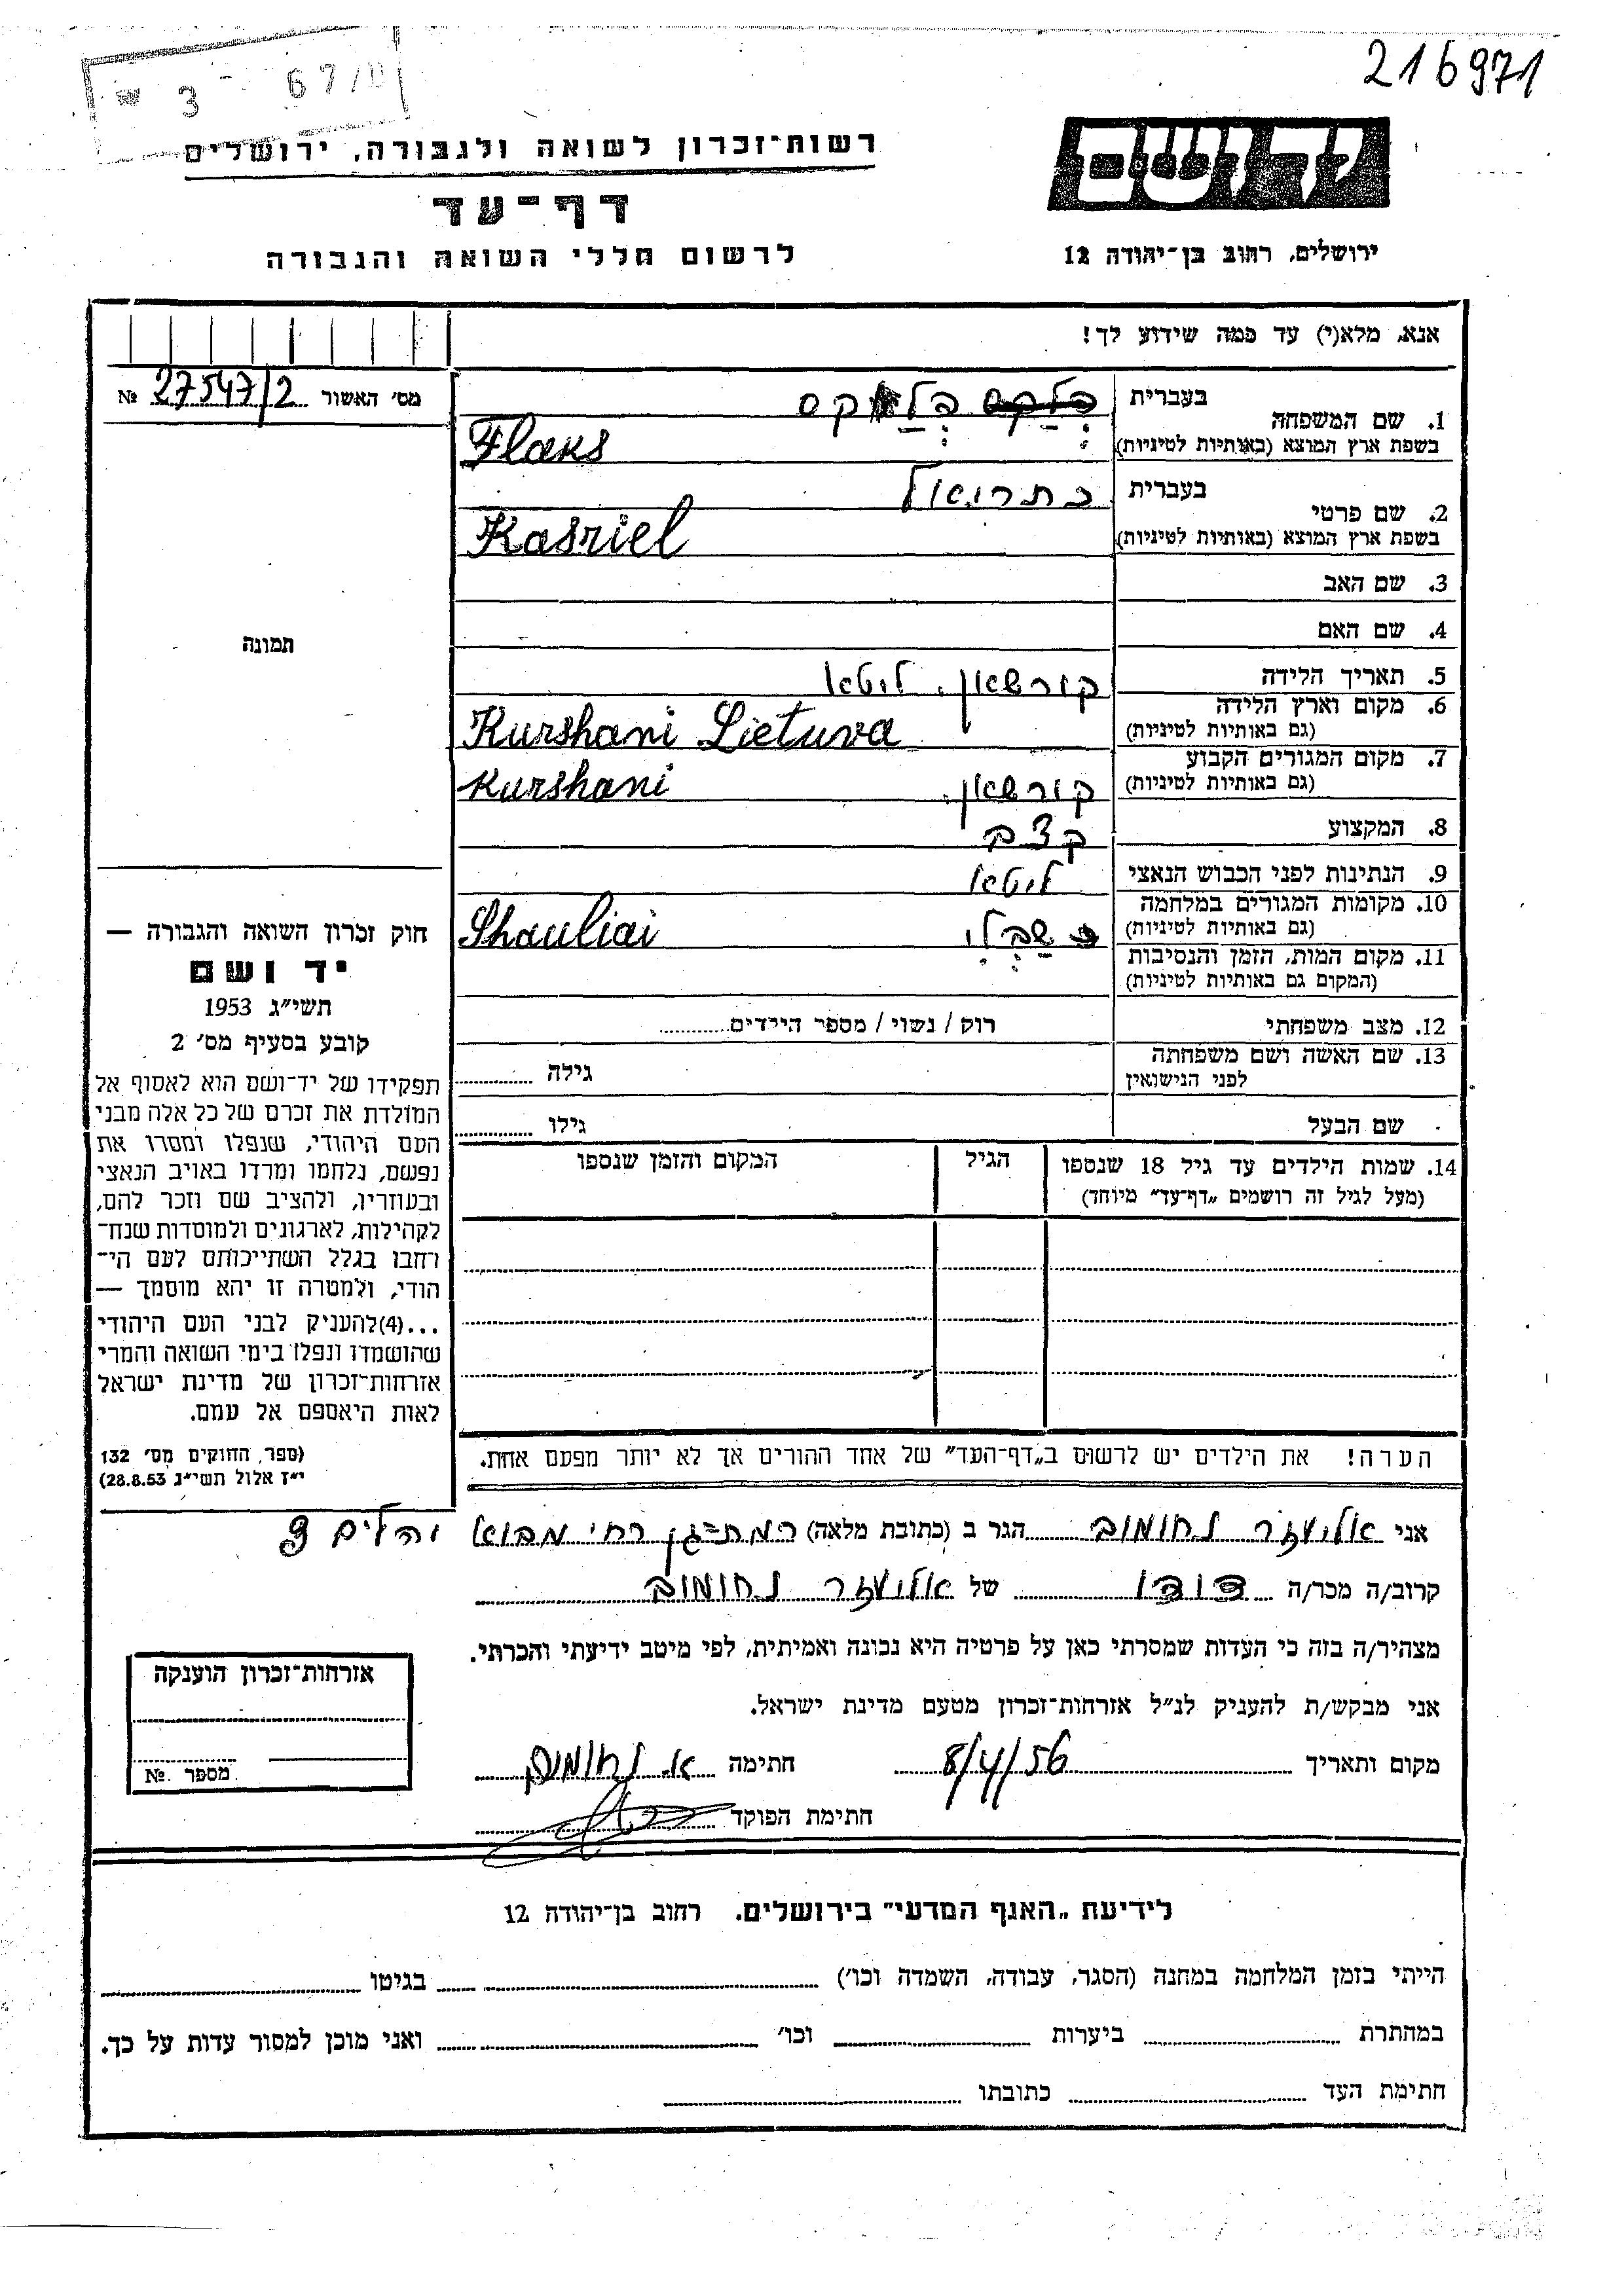 216971
3 - 67/
רשות־זכרון לשואה ולגבורה, ירושלים
ידושם
דף־עד
ירושלים, רחוב בן־יהודה 12
לרשום חללי השואה והגבורה
אנא, מלא(י) עד כמה שידוע לך!
מס׳ האשור 27547/2 №
1. שם המשפחה בעברית פלאקס
בשפת ארץ המוצא (באותיות לטיניות) Flaks
2. שם פרטי בעברית כתריאל
בשפת ארץ המוצא (באותיות לטיניות) Kasriel
3. שם האב
4. שם האם
תמונה
5. תאריך הלידה
קורשאן, ליטא
6. מקום וארץ הלידה
(גם באותיות לטיניות) Kurshani Lietuva
7. מקום המגורים הקבוע
(גם באותיות לטיניות) קורשאן. Kurshani
8. המקצוע קצב
9. הנתינות לפני הכבוש הנאצי ליטא
10. מקומות המגורים במלחמה
(גם באותיות לטיניות) שבלי Shauliai
11. מקום המות, הזמן והנסיבות
(המקום גם באותיות לטיניות)
12. מצב משפחתי רוק / נשוי / מספר הילדים
13. שם האשה ושם משפחתה
לפני הנישואין גילה
שם הבעל גילו
14. שמות הילדים עד גיל 18 שנספו הגיל המקום והזמן שנספו
(מעל לגיל זה רושמים „דף־עד” מיוחד)
חוק זכרון השואה והגבורה —
יד ושם
תשי״ג 1953
קובע בסעיף מס׳ 2
תפקידו של יד־ושם הוא לאסוף אל
המולדת את זכרם של כל אלה מבני
העם היהודי, שנפלו ומסרו את
נפשם, נלחמו ומרדו באויב הנאצי
ובעוזריו, ולהציב שם וזכר להם,
לקהילות, לארגונים ולמוסדות שנח־
רבו בגלל השתייכותם לעם הי־
הודי, ולמטרה זו יהא מוסמך —
...(4)להעניק לבני העם היהודי
שהושמדו ונפלו בימי השואה והמרי
אזרחות־זכרון של מדינת ישראל
לאות היאספם אל עמם.
(ספר החוקים מס׳ 132
י״ז אלול תשי״ג 28.8.53)
הערה! את הילדים יש לרשום ב„דף־העד” של אחד ההורים אך לא יותר מפעם אחת.
אני אליעזר נחומוב הגר ב (כתובת מלאה) רמת־גן רח׳ מבוא
קרוב/ה מכר/ה דודו של אליעזר נחומוב
מצהיר/ה בזה כי העדות שמסרתי כאן על פרטיה היא נכונה ואמיתית, לפי מיטב ידיעתי והכרתי.
אני מבקש/ת להעניק לנ״ל אזרחות־זכרון מטעם מדינת ישראל.
מקום ותאריך 8/4/56 חתימה א. נחומוב
חתימת הפוקד
אזרחות־זכרון הוענקה
מספר №
לידיעת „האגף המדעי” בירושלים. רחוב בן־יהודה 12
הייתי בזמן המלחמה במחנה (הסגר, עבודה, השמדה וכו׳) בגיטו
במחתרת ביערות וכו׳ ואני מוכן למסור עדות על כך.
חתימת העד כתובתו